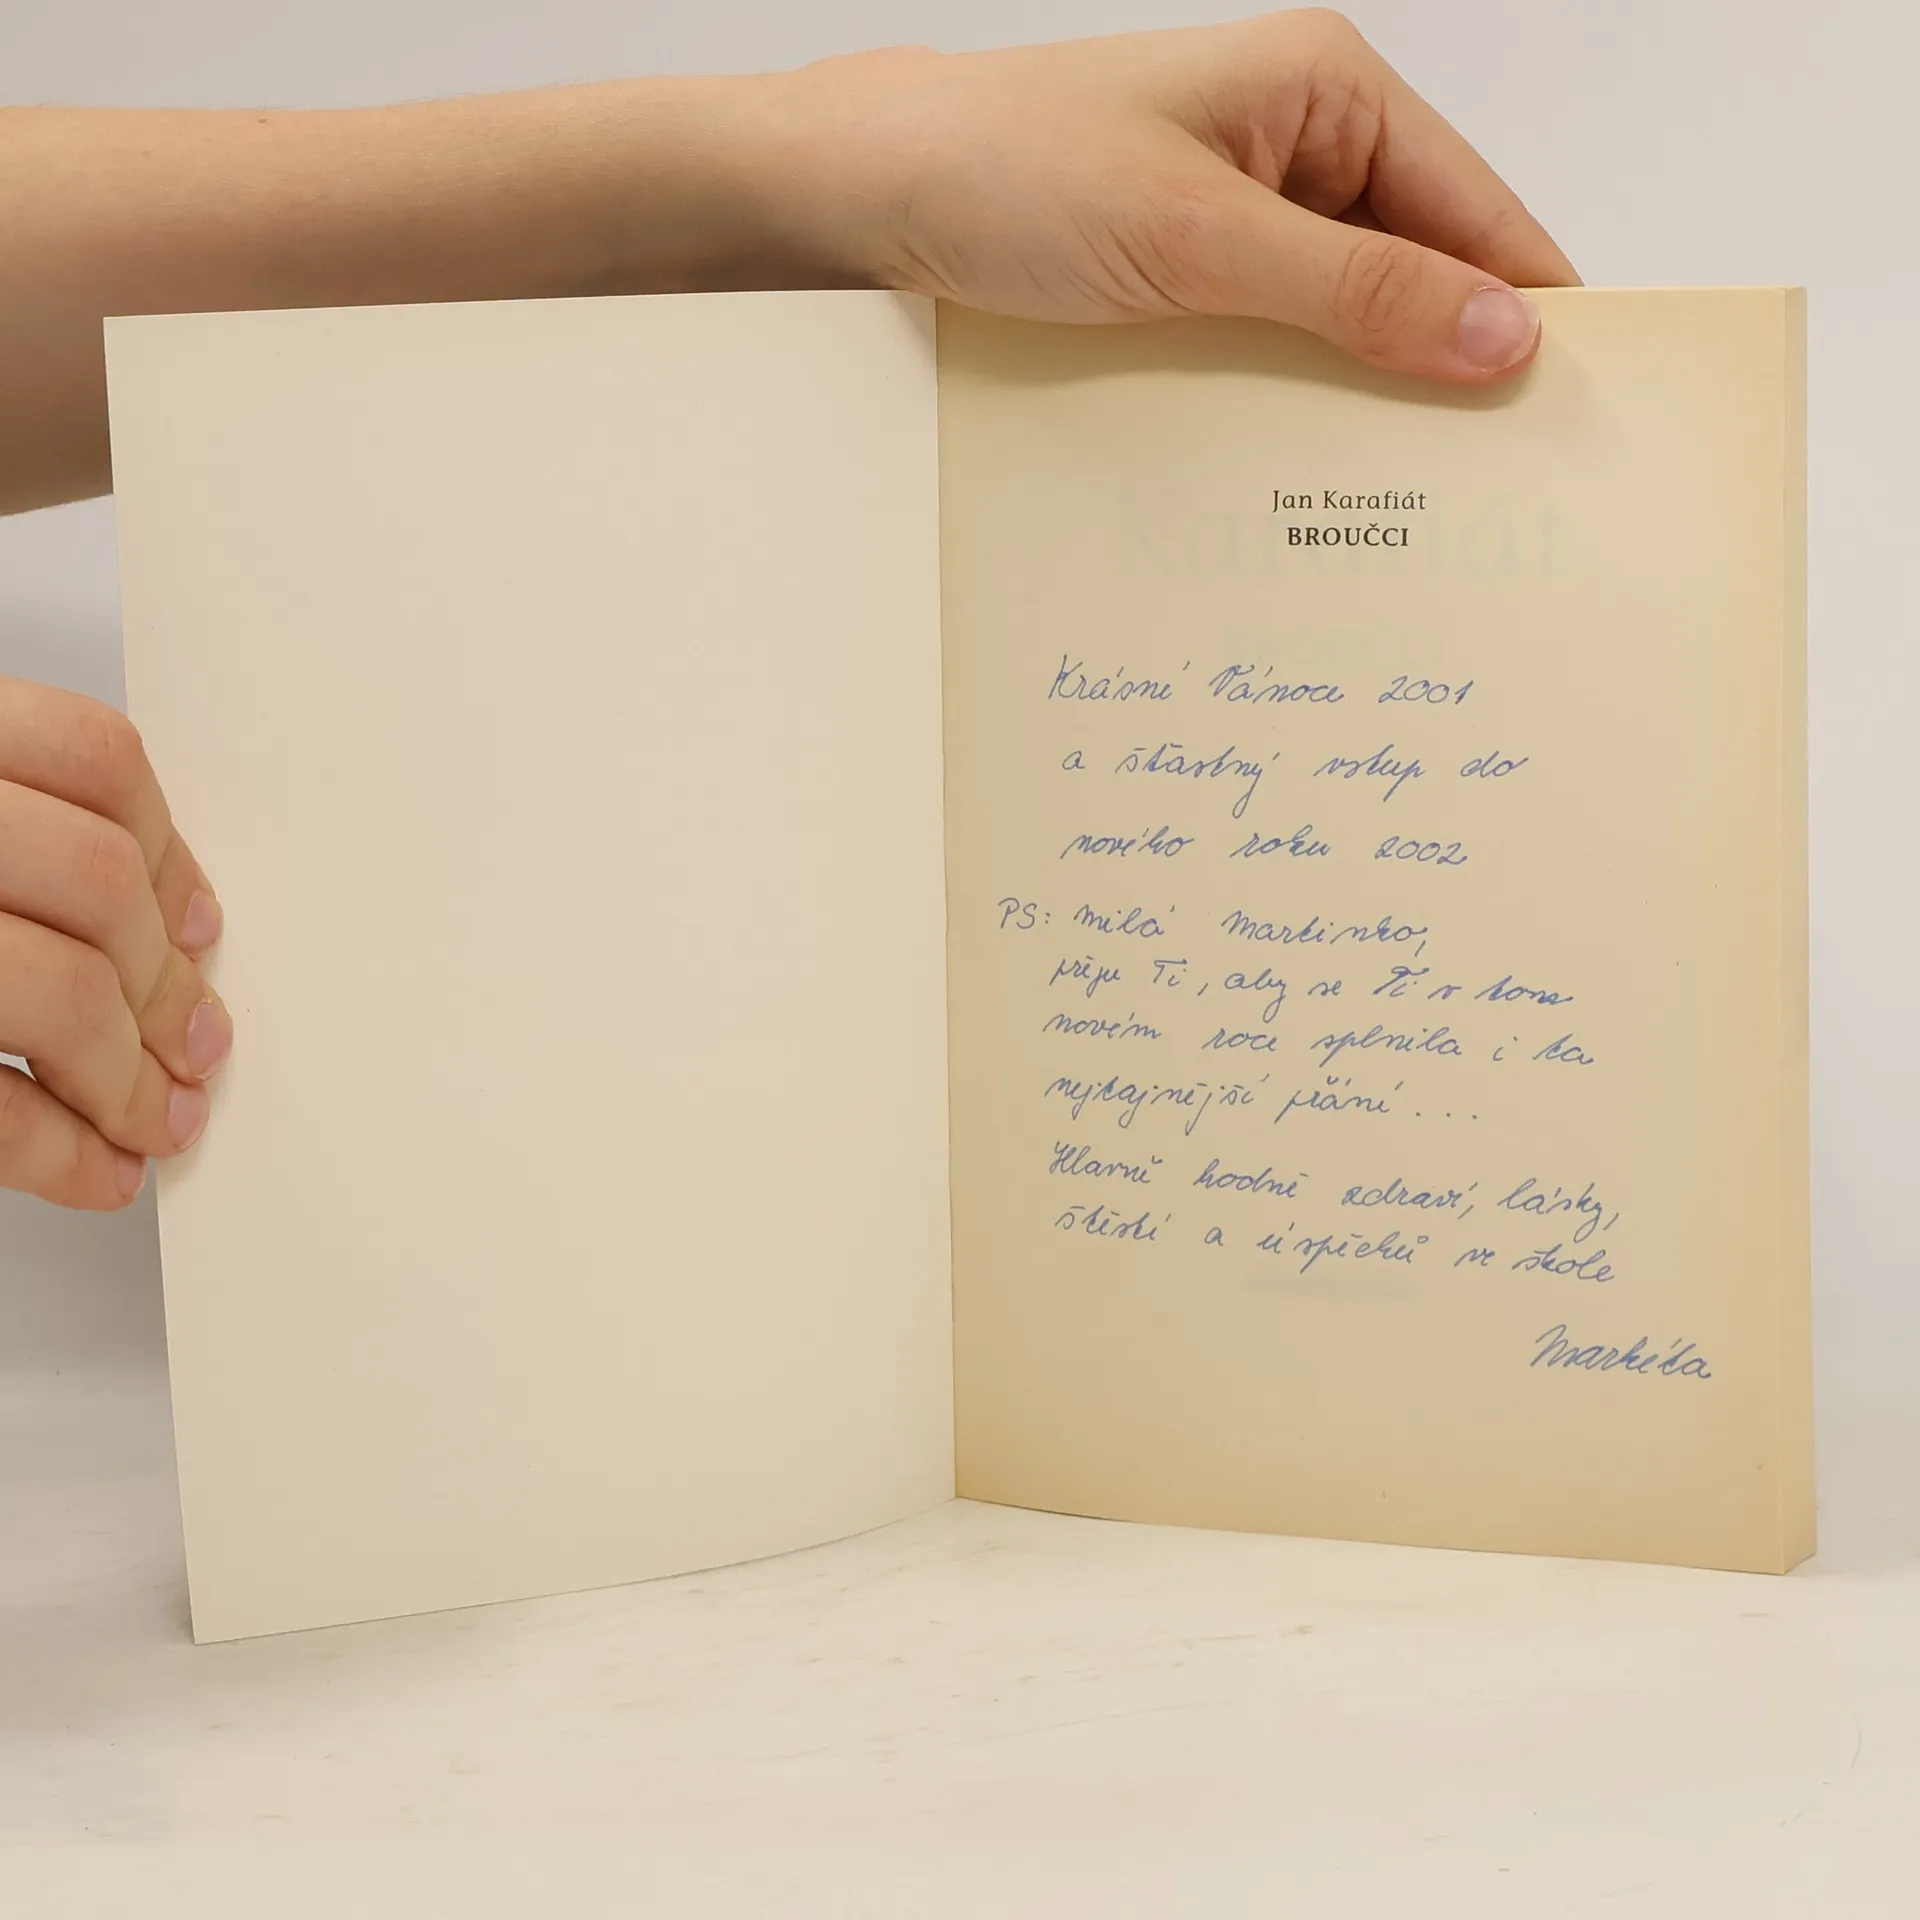 Jan Karafiát
BROUČCI
Krásné Vánoce 2001
a šťastný vstup do
nového roku 2002
PS: Milá Martinko,
přeju Ti, aby se Ti v tom
novém roce splnila i ta
nejtajnější přání...
Hlavně hodně zdraví, lásky,
štěstí a úspěchů ve škole
Markéta